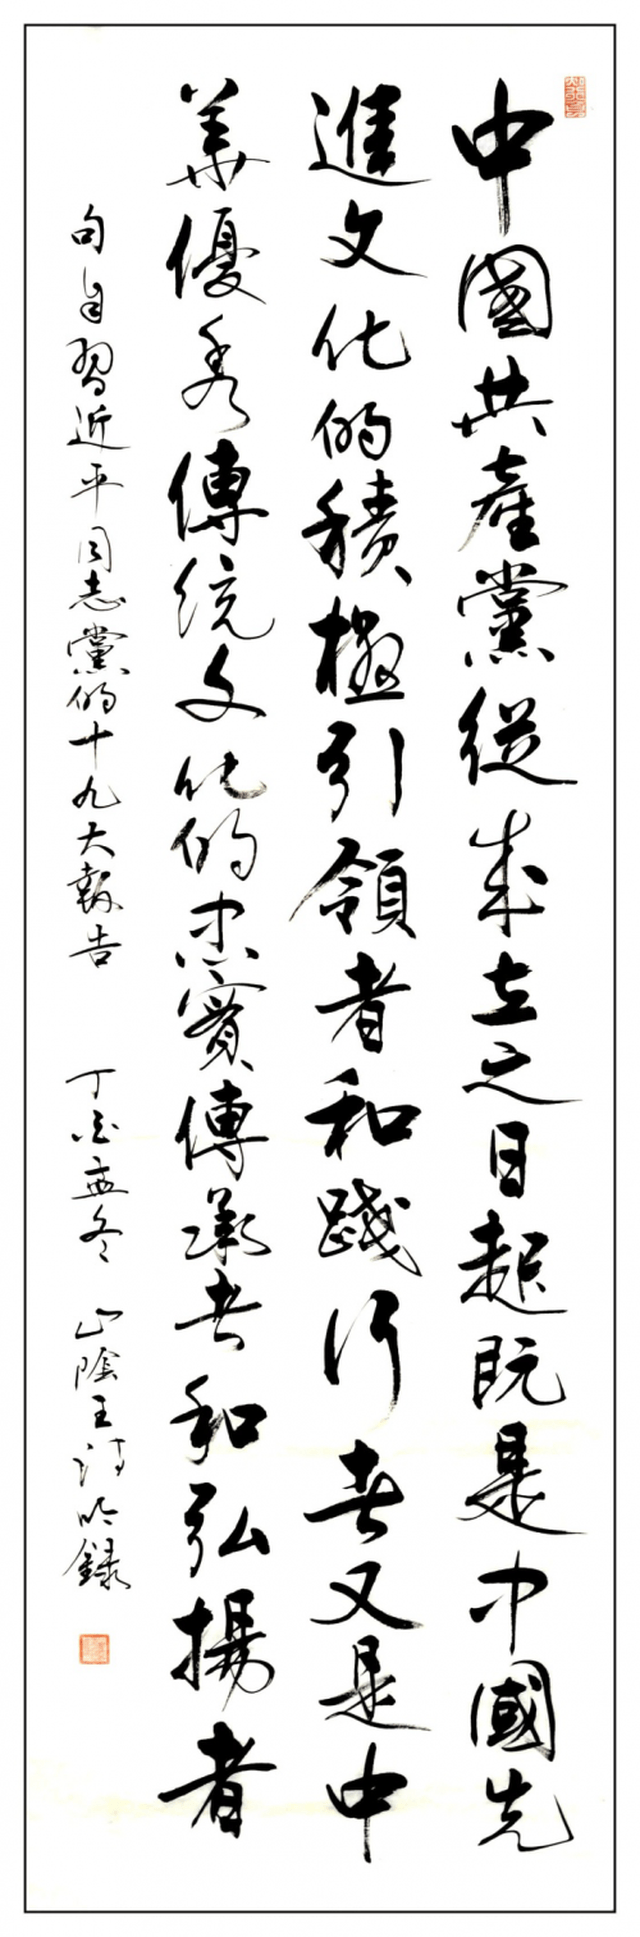 中國共產黨從成立之日起既是中國先
進文化的積極引領者和踐行者又是中
華優秀傳統文化的忠實傳承者和弘揚者
句自習近平同志黨的十九大報告 丁酉孟冬 山陰王詩吟錄